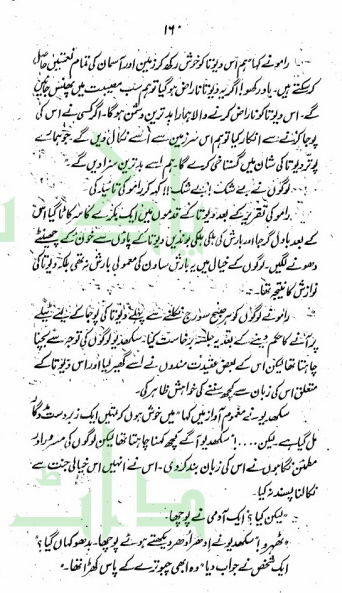 ۱۶۰
رامو نے کہا ہم اس دیوتا کو خوش رکھ کر زمین اور آسمان کی تمام نعمتیں حاصل
کر سکتے ہیں۔ یاد رکھو! اگر یہ دیوتا ناراض ہو گیا تو ہم سب مصیبت میں پھنس جائیں
گے۔ اس دیوتا کو ناراض کرنے والا ہمارا بدترین دشمن ہو گا۔ اگر کسی نے اس کی
پوجا کرنے سے انکار کیا تو ہم اس سرزمین سے اسے نکال دیں گے۔ جو ہمارے
پوتر دیوتا کی شان میں گستاخی کرے گا۔ ہم اسے بدترین سزا دیں گے۔
لوگوں نے بے شک! بے شک! کہہ کر رامو کی تائید کی۔
رامو کی تقریر کے بعد دیوتا کے قدموں میں ایک بکرے کا سر کاٹا گیا اس
کے بعد بادل گرجا اور بارش کی ہلکی ہلکی بوندیں دیوتا کے پاؤں سے خون کے چھینٹے
دھونے لگیں۔ لوگوں کے خیال میں یہ بارش ساون کی معمولی بارش نہ تھی بلکہ دیوتا کی
نوازش کا نتیجہ تھا۔
رامو نے لوگوں کو ہر صبح سورج نکلنے سے پہلے دیوتا کی پوجا کے لیے ٹیلے
پر آنے کا حکم دینے کے بعد یہ جلسہ برخاست کیا۔ سکھدیو لوگوں کی توجہ سے بچنا
چاہتا تھا لیکن اس کے بعض عقیدت مندوں نے اسے گھیر لیا اور اس دیوتا کے
متعلق اس کی زبان سے کچھ سننے کی خواہش ظاہر کی۔
سکھدیو نے مغموم آواز میں کہا "میں خوش ہوں کہ تمہیں ایک زبردست مددگار
مل گیا ہے لیکن....!" سکھدیو آگے کچھ کہنا چاہتا تھا لیکن لوگوں کی مسرور اور
مطمئن نگاہوں نے اس کی زبان بند کر دی۔ اس نے انہیں اس خیالی جنت سے
نکالنا پسند نہ کیا۔
"لیکن کیا؟" ایک آدمی نے پوچھا۔
"ٹھہرو!" سکھدیو نے ادھر ادھر دیکھتے ہوئے پوچھا۔ بدھو کہاں گیا؟"
ایک شخص نے جواب دیا "وہ ابھی چبوترے کے پاس کھڑا تھا۔"